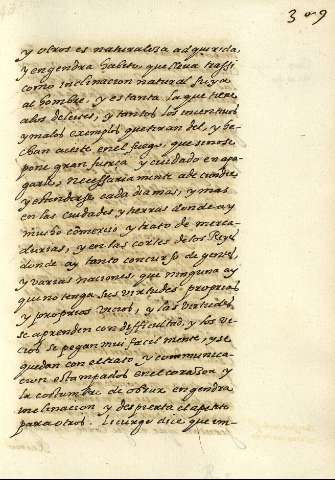 309
y otros es naturaleza adquirida,
y engendra habito, que lleva tras si
como inclinacion natural suya
al hombre, y es tanta la que tiene
alos deleites, y tantos los incentivos
y malos exemplos que tiran del, y he-
chan aceite en el fuego, que sino se
pone gran fuerça y cuidado en apa-
garle, necessariamente a de cundir
y estenderse cada dia mas, y mas
en las ciudades y tierras donde ay
mucho comercio y trato de merca-
durias, y en las cortes de los Reyes
donde ay tanto concurso de gentes
y varias naciones, que ninguna ay
qui no tenga sus virtudes proprias
y proprios vicios, y las virtudes
se aprenden con difficultad, y los vi-
cios se pegan mui facilmente, y se
quedan con el trato, y communica-
cion estampados en el coraçon, y
la costumbre de obrar engendra
inclinacion y despierta el apetito
para otros. Licurgo dice que un-